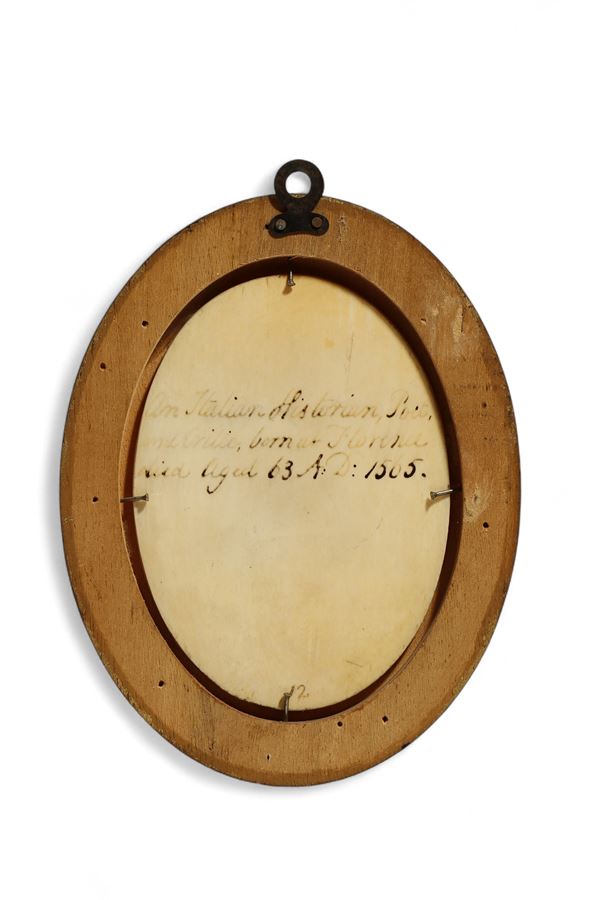 An Italian Historian, Poet,
and Critic, born at Florence
died Aged 63 A: D: 1565.
12